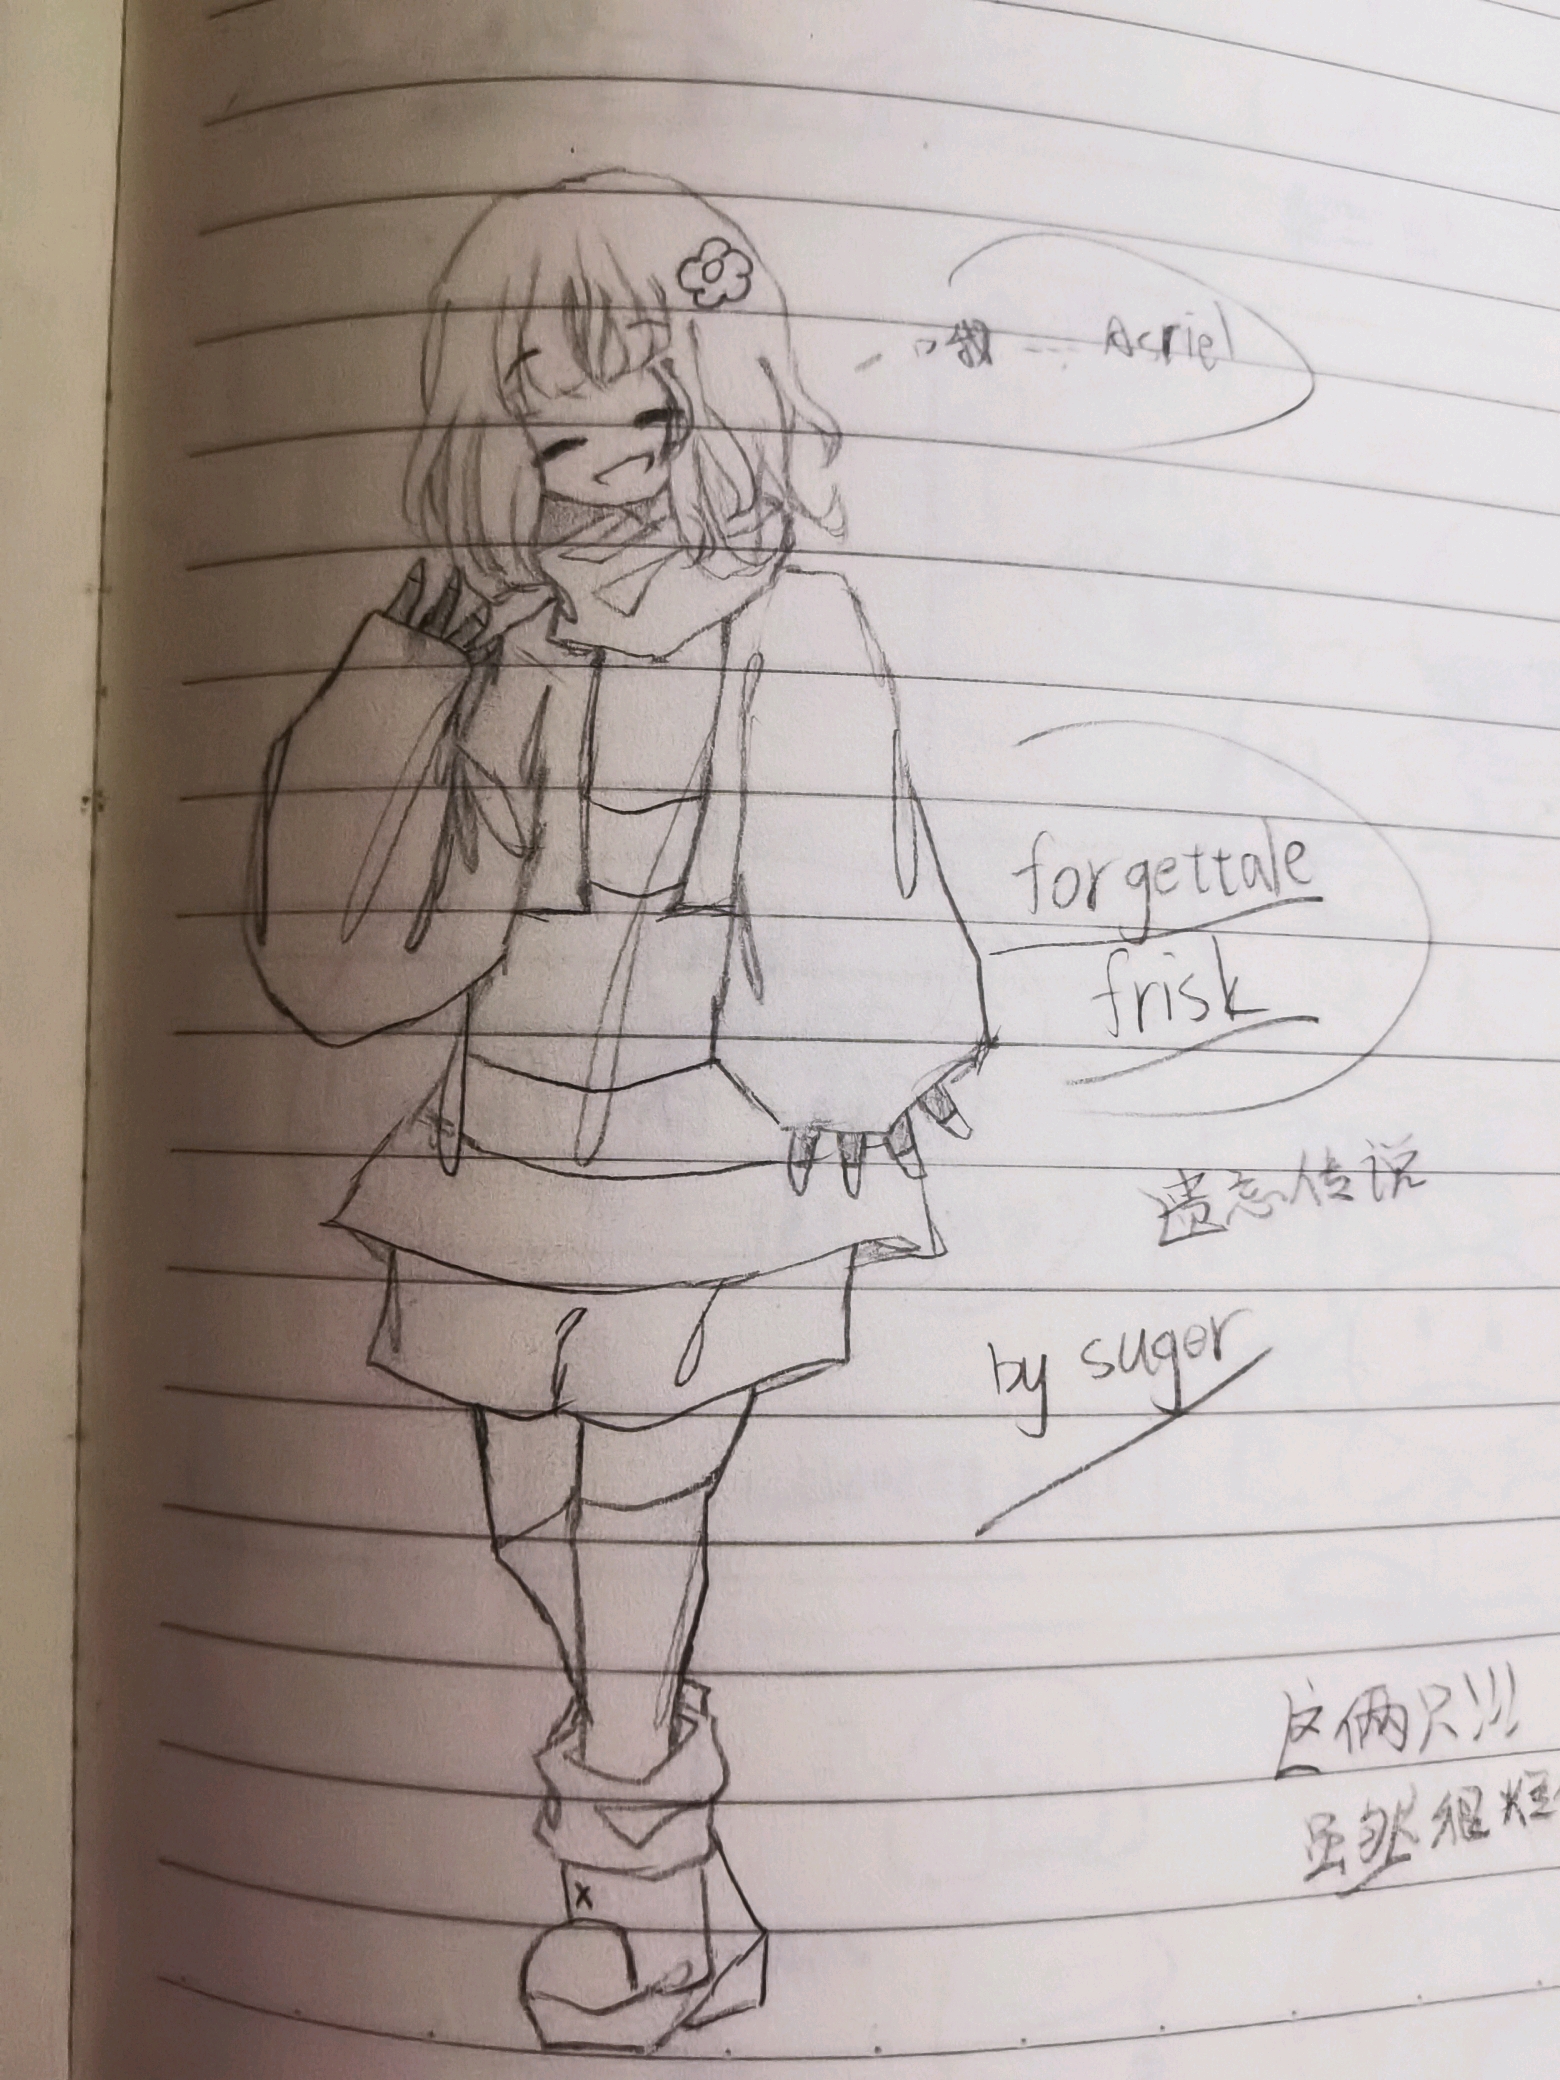 哦 …… Asriel
forgettale
frisk
遗忘传说
by suger
这俩只!!!
虽然很